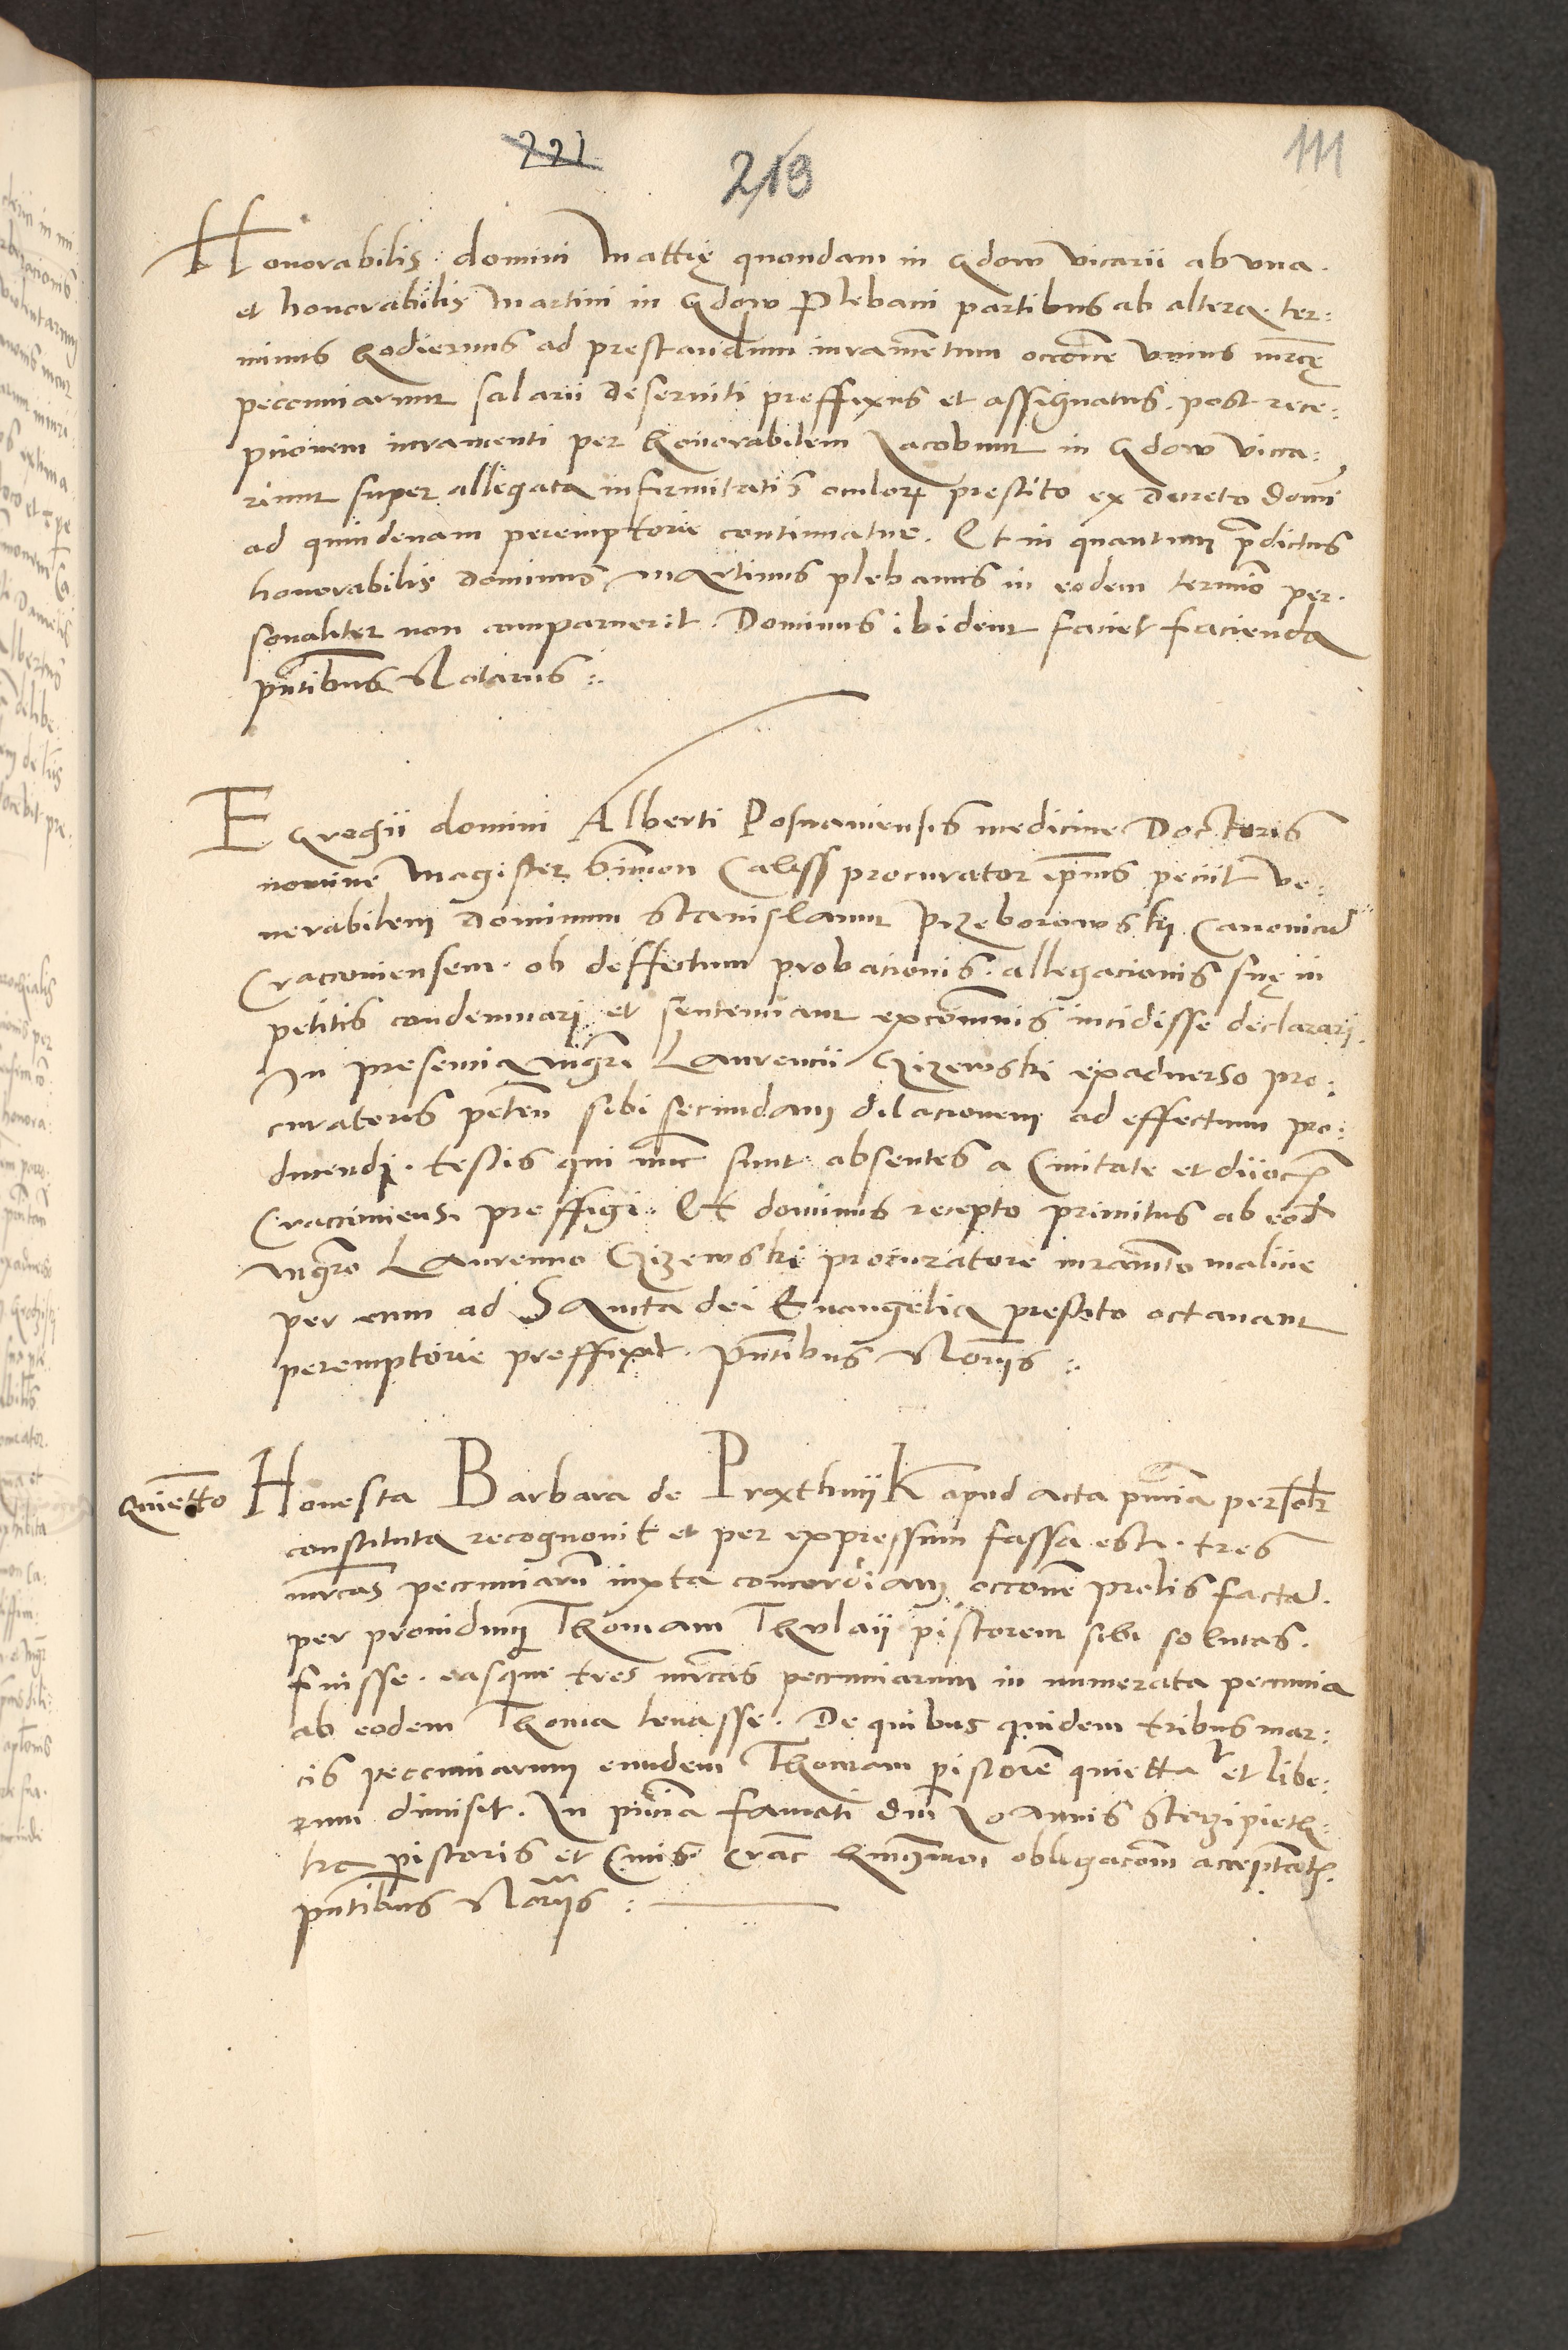 221
213
111
Honorabilis domini Mattię quondam in Gdow vicarii ab vna
et honorabilis Martini in Gdow Plebani partibus ab altera. ter:
minus hodiernus ad prestandum iuramentum occone vnius mrcę
peccuniarum salarii deserviti preffixus et assignatus. post rece:
pcionem iuramenti per honorabilem Iacobum in Gdow vica:
rium super allegata infirmitatis oculorum prestito ex decreto domi
ad quindenam peremptorie continuatur. Et in quantum predictus
honorabilis dominus Martinus plebanus in eodem termio per.
sonaliter non comparuerit. Dominus ibidem faciet facienda
pntibus Notarus
Egregii domini Alberti Posnaniensis medicine Doctoris
nomine Magister Simon Caliss procurator ipius peciit ve:
nerabilem dominum Stanislaum Przeborowski Canonicu
Cracouiensem. ob deffectum probacionis. allegacionis suę in
petitis condemnari et sentenciam excomnis incidisse declarari.
In presencia mgri Laurencii Czizewski exaduerso pro:
curatoris peten sibi secundam dilacionem ad effectum pro:
ducendi. testis qui nunc sunt absentes a Ciuitate et diioc
Cracouiensi preffigi. Et dominus recepto primitus ab eod
mgro Laurencio Czizewski procuratore iuramto malicie
per eum ad Sancta dei Euangelia prestito octauam
peremptorie preffixit. pntibus Noriis
Quietto
Honesta Barbara de Proxthwijk apud acta pncia personlr
constituta recognouit et per expressum fassa est. tres
mrcas peccuniarum iuxta concordiam occone prolis facta.
per prouidum Thomam Thulaij pistorem sibi solutas.
fuisse. easque tres mrcas peccuniarum in numerata peccunia
ab eodem Thoma leuasse. De quibus quidem tribus mar:
cis peccuniarum eundem Thomam pistore quietta et libe:
rum dimisit. In pncia famati dni Ioannis
pistoris et Ciuis Crac obligacom acceptate.
pntibus Noriis